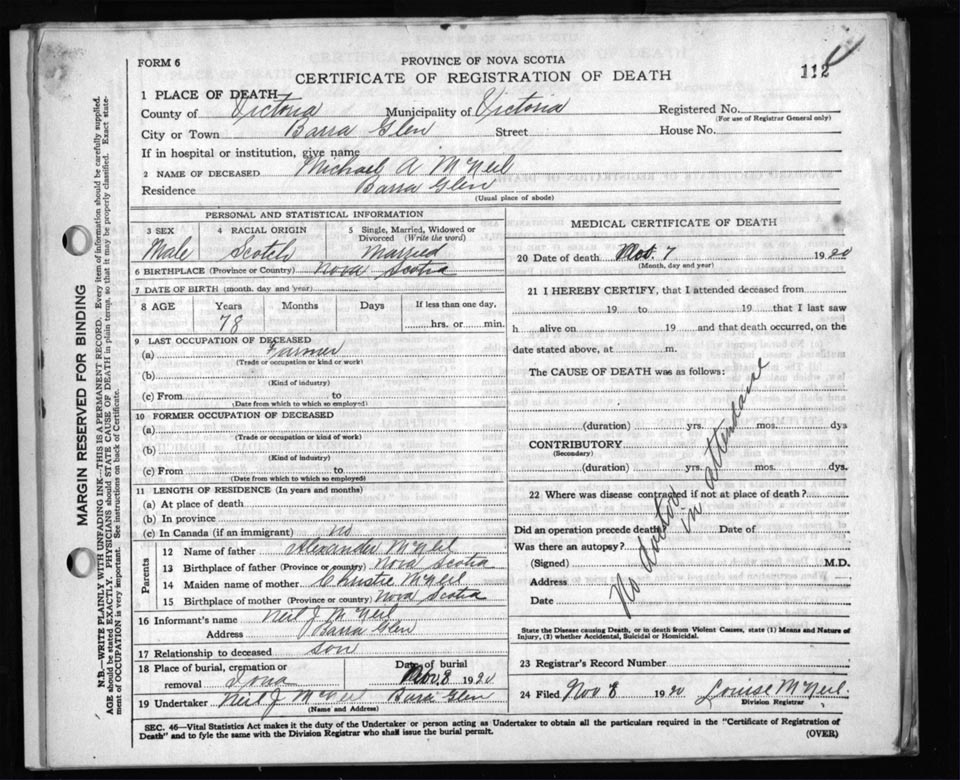 FORM 6
PROVINCE OF NOVA SCOTIA
CERTIFICATE OF REGISTRATION OF DEATH
112
1 PLACE OF DEATH—
County of Victoria Municipality of Victoria Registered No.
(For use of Registrar General only)
City or Town Barra Glen Street House No.
If in hospital or institution, give name
2 NAME OF DECEASED Michael A McNeil
Residence Barra Glen
(Usual place of abode)
PERSONAL AND STATISTICAL INFORMATION
3 SEX 4 RACIAL ORIGIN 5 Single, Married, Widowed or Divorced (Write the word)
Male Scotch Married
6 BIRTHPLACE (Province or Country) Nova Scotia
7 DATE OF BIRTH (month, day and year)
8 AGE Years Months Days If less than one day,
78 hrs. or min.
9 LAST OCCUPATION OF DECEASED
(a) Farmer
(Trade or occupation or kind or work)
(b)
(Kind of industry)
(c) From to
(Date from which to which so employed)
10 FORMER OCCUPATION OF DECEASED
(a)
(Trade or occupation or kind of work)
(b)
(Kind of industry)
(c) From to
(Date from which to which so employed)
11 LENGTH OF RESIDENCE (In years and months)
(a) At place of death
(b) In province
(c) In Canada (if an immigrant) no
Parents
12 Name of father Alexander McNeil
13 Birthplace of father (Province or country) Nova Scotia
14 Maiden name of mother Christie McNeil
15 Birthplace of mother (Province or country) Nova Scotia
16 Informant's name Neil J McNeil
Address Barra Glen
17 Relationship to deceased son
18 Place of burial, cremation or Date of burial
removal Iona Nov. 8 1920
19 Undertaker Neil J McNeil Barra Glen
(Name and Address)
MEDICAL CERTIFICATE OF DEATH
20 Date of death Nov. 7 1920
(Month, day and year)
21 I HEREBY CERTIFY, that I attended deceased from
19 to 19 that I last saw
h alive on 19 and that death occurred, on the
date stated above, at m.
The CAUSE OF DEATH was as follows:
(duration) yrs. mos. dys
CONTRIBUTORY
(Secondary)
(duration) yrs. mos. dys.
22 Where was disease contracted if not at place of death?
Did an operation precede death Date of
Was there an autopsy?
(Signed) M.D.
Address
Date
No doctor in attendance
State the Disease causing Death, or in death from Violent Causes, state (1) Means and Nature of
Injury, (2) whether Accidental, Suicidal or Homicidal.
23 Registrar's Record Number
24 Filed Nov 8 1920 Louise McNeil.
Division Registrar
SEC. 46—Vital Statistics Act makes it the duty of the Undertaker or person acting as Undertaker to obtain all the particulars required in the "Certificate of Registration of
Death" and to fyle the same with the Division Registrar who shall issue the burial permit.
(OVER)
MARGIN RESERVED FOR BINDING
N.B.—WRITE PLAINLY WITH UNFADING INK—THIS IS A PERMANENT RECORD. Every item of information should be carefully supplied.
AGE should be stated EXACTLY. PHYSICIANS should STATE CAUSE OF DEATH in plain terms, so that it may be properly classified. Exact state-
ment of OCCUPATION is very important. See instructions on back of Certificate.